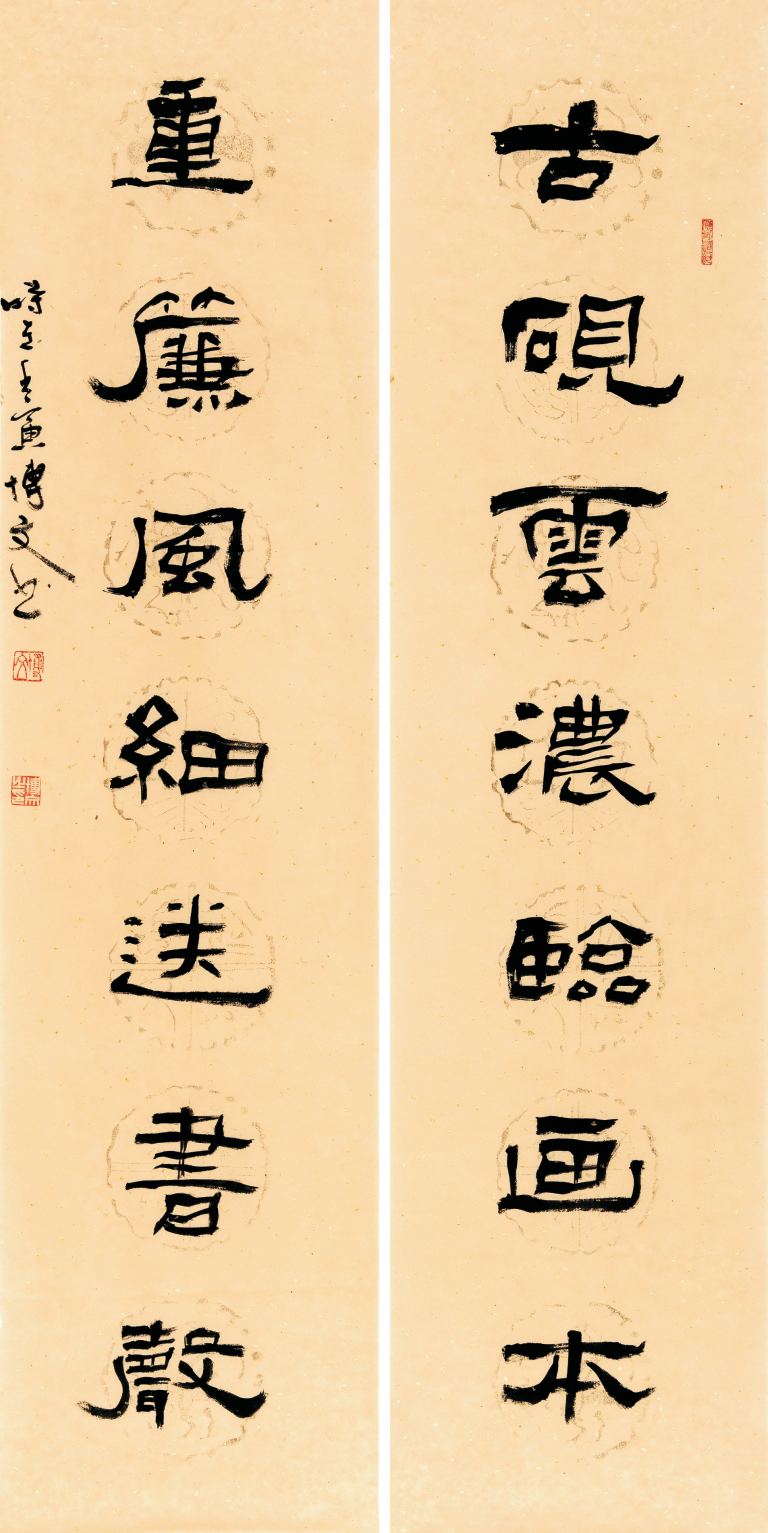 古硯雲濃臨画本
重簾風細送書聲
博文